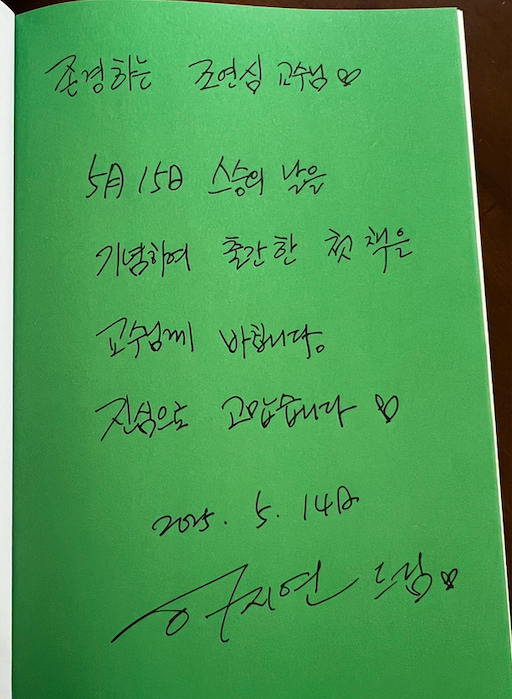 존경하는 조연심 교수님 ♡
5月 15日 스승의 날을
기념하여 출간한 첫 책을
교수님께 바칩니다.
진심으로 고맙습니다 ♡
2025. 5. 14日
지연 드림 ♡